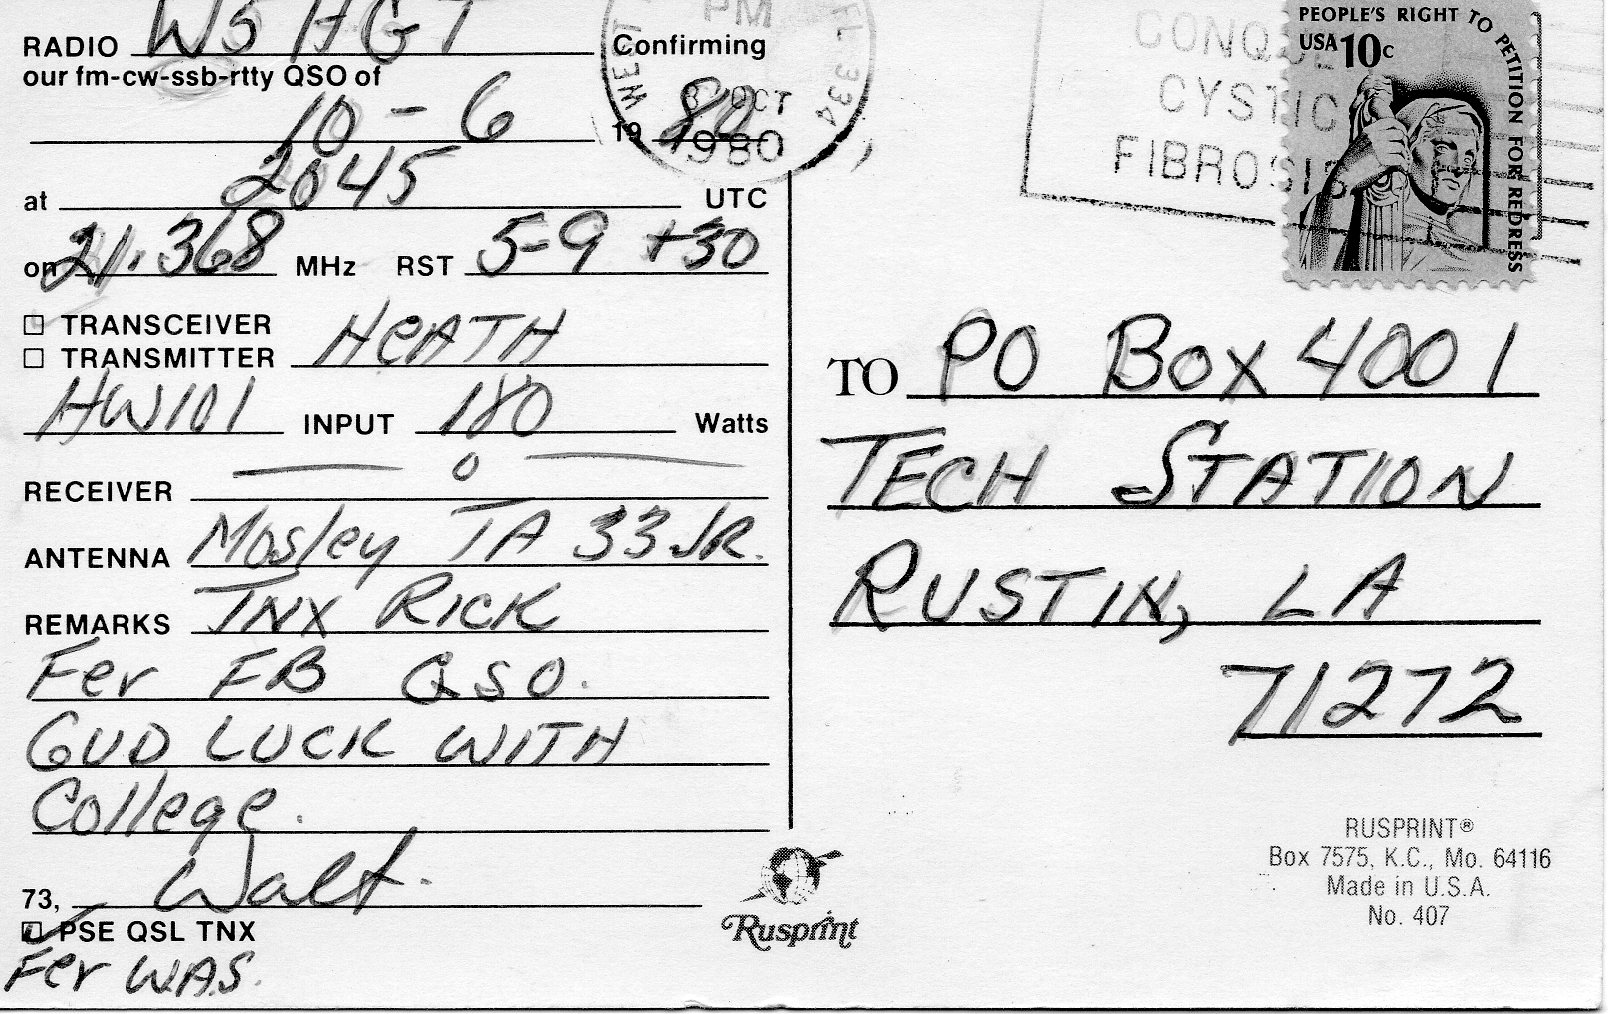 RADIO W5HGT Confirming
our fm-cw-ssb-rtty QSO of
10-6 19 80
at 2045 UTC
on 21.368 MHz RST 5-9 +30
☐ TRANSCEIVER
☐ TRANSMITTER HEATH
HW101 INPUT 180 Watts
RECEIVER — 0 —
ANTENNA Mosley TA 33 JR.
REMARKS TNX RICK
Fer FB QSO.
GUD LUCK WITH
College.
73, Walt.
☑ PSE QSL TNX
Fer W.A.S.
Rusprint
WEST
PM
FL 334
OCT
1980
CONQUER
CYSTIC
FIBROSIS
PEOPLE'S RIGHT TO PETITION FOR REDRESS
USA 10c
TO PO Box 4001
TECH STATION
RUSTIN, LA
71272
RUSPRINT®
Box 7575, K.C., Mo. 64116
Made in U.S.A.
No. 407